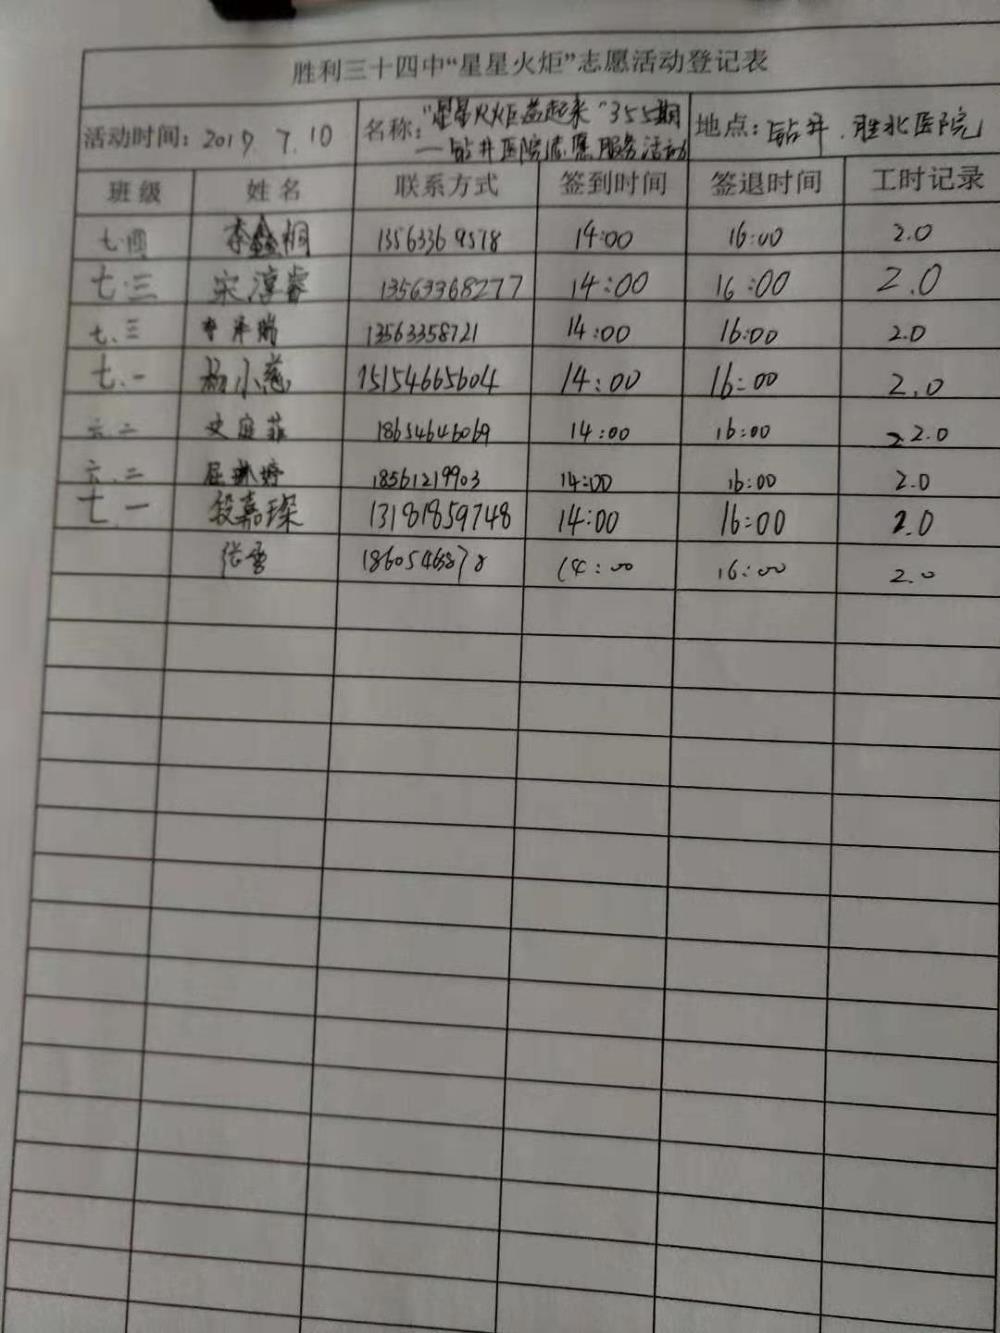 胜利三十四中“星星火炬”志愿活动登记表
活动时间：2019 7.10 名称：“星星火炬益起来”355期 地点：钻井.胜北医院
—钻井医院志愿服务活动
班级 姓名 联系方式 签到时间 签退时间 工时记录
七.四 李鑫桐 13563369578 14:00 16:00 2.0
七.三 宋淳睿 13563368277 14:00 16:00 2.0
七.三 13563358721 14:00 16:00 2.0
七.一 杨小慈 15154665604 14:00 16:00 2.0
六.二 史庭菲 18654646069 14:00 16:00 2 2.0
六.二 屈琳婷 18561219903 14:00 16:00 2.0
七.一 段嘉琛 13181859748 14:00 16:00 2.0
张雪 1860546878 14:00 16:00 2.0